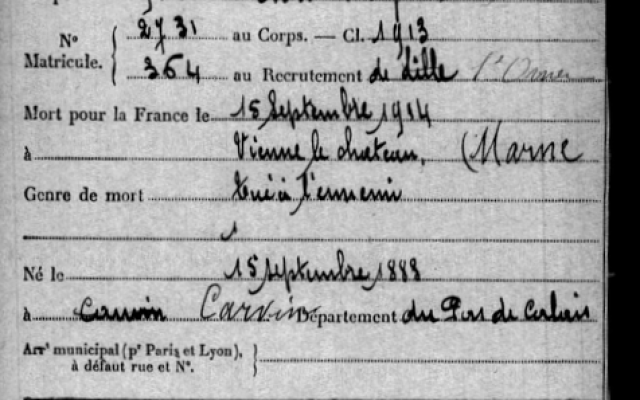 Nº 2731 au Corps. — Cl. 1913
Matricule. 364 au Recrutement de Lille St Omer
Mort pour la France le 15 Septembre 1914
à Vienne le chateau, (Marne
Genre de mort tué à l'ennemi
Né le 15 septembre 1888
à Carvin Département du Pas de Calais
Arrt municipal (pr Paris et Lyon),
à défaut rue et Nº.